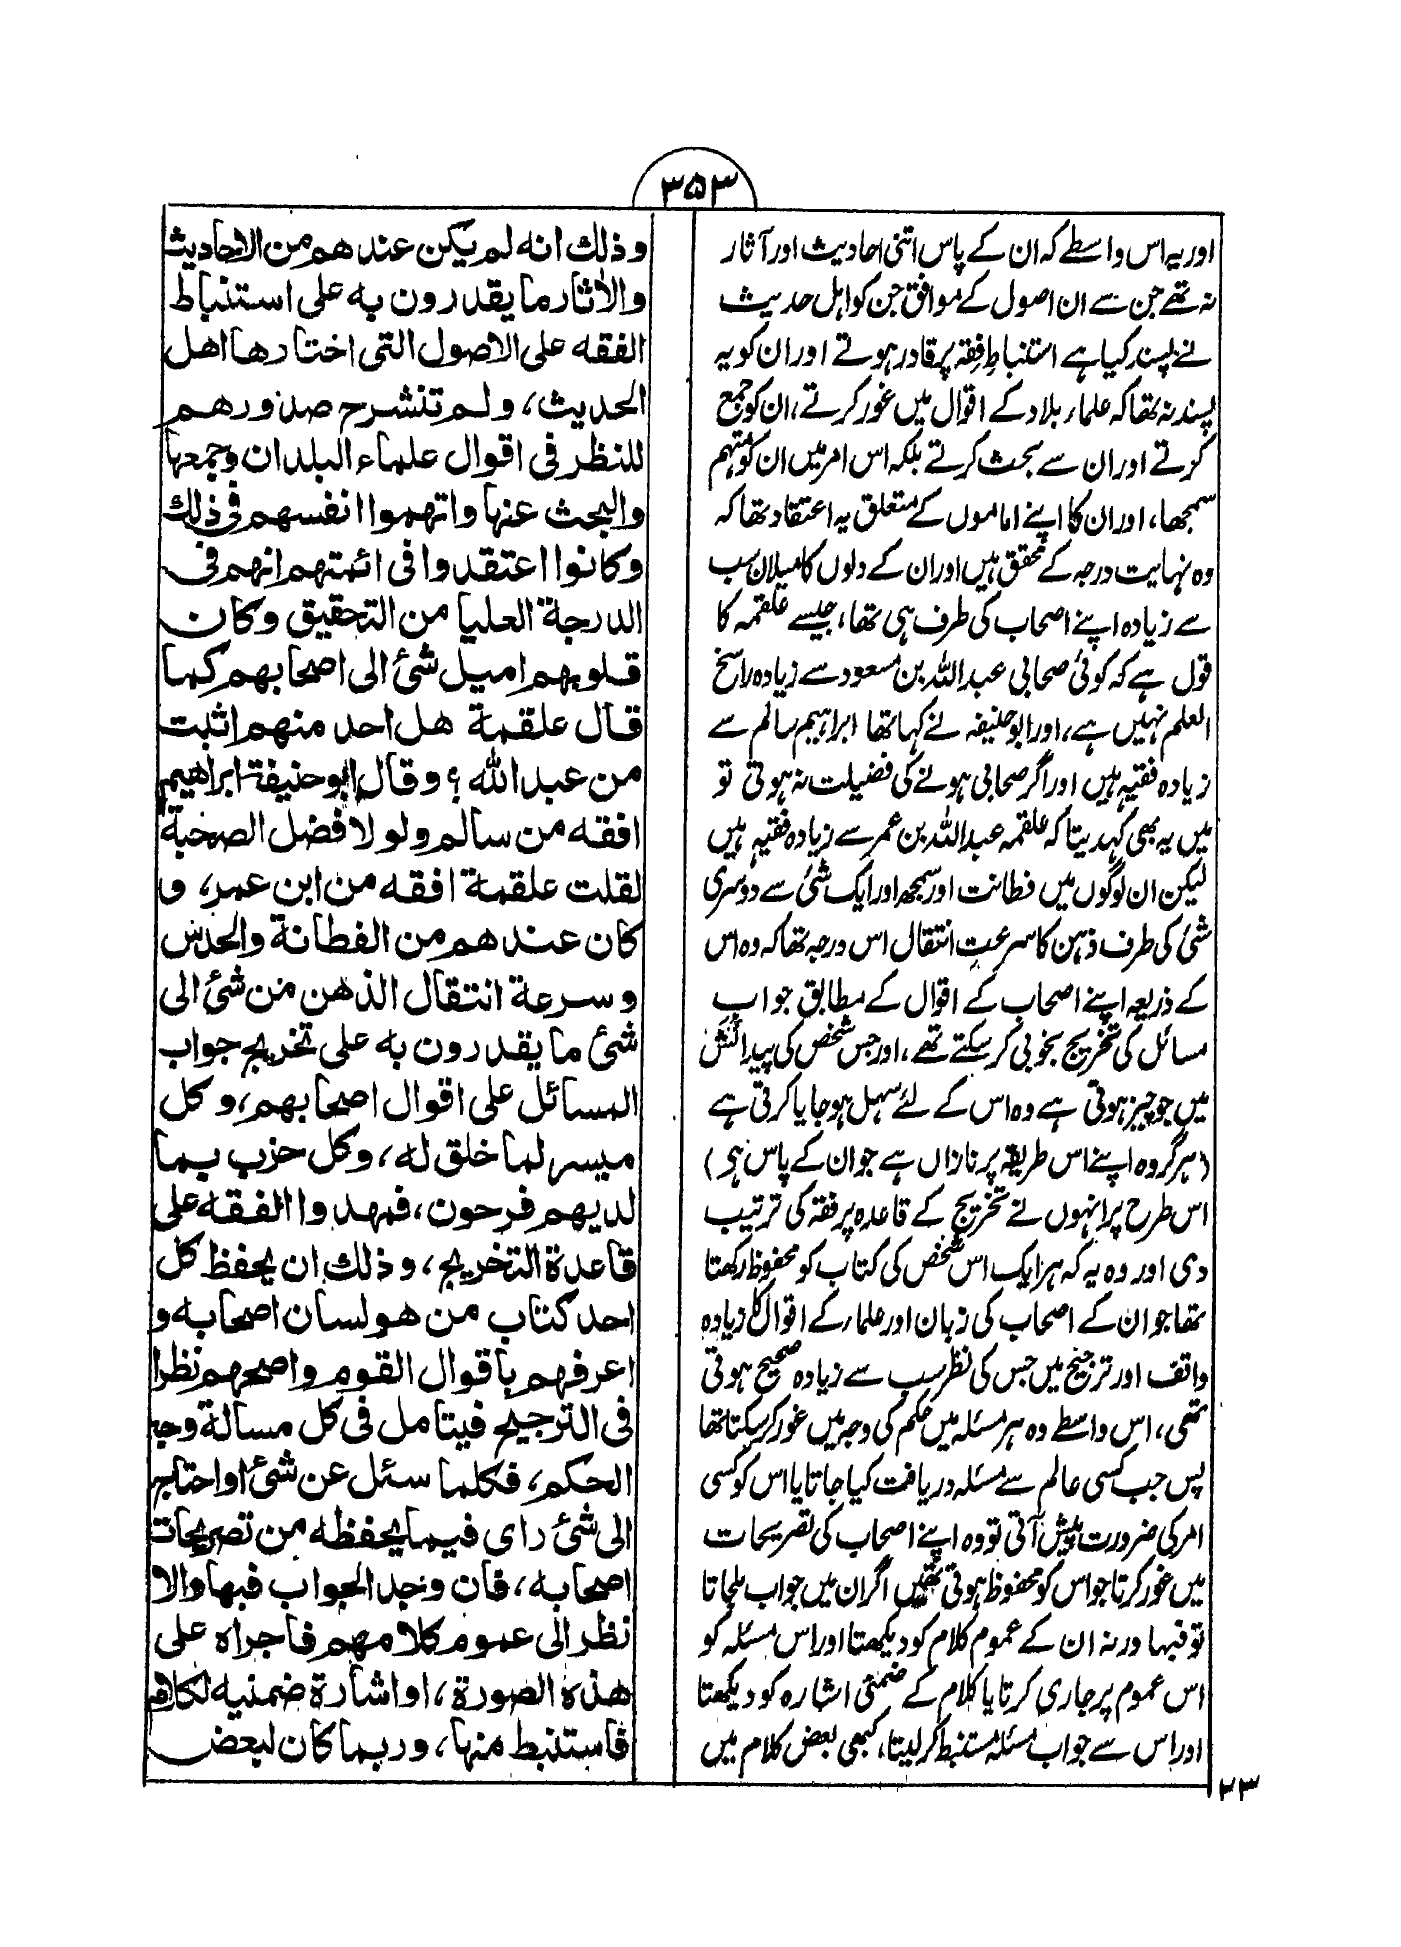 ۳۵۳
اور یہ اس واسطے کہ ان کے پاس اتنی احادیث اور آثار
نہ تھے جن سے ان اصول کے موافق جن کو اہل حدیث
نے پسند کیا ہے استنباطِ فقہ پر قادر ہوتے اور ان کو یہ
پسند نہ تھا کہ علماء بلاد کے اقوال میں غور کرتے، ان کو جمع
کرتے اور ان سے بحث کرتے بلکہ اس امر میں ان کو متہم
سمجھا، اور ان کا اپنے اماموں کے متعلق یہ اعتقاد تھا کہ
وہ نہایت درجہ کے محقق ہیں اور ان کے دلوں کا میلان سب
سے زیادہ اپنے اصحاب کی طرف ہی تھا، جیسے علقمہ کا
قول ہے کہ کوئی صحابی عبداللہ بن مسعود سے زیادہ راسخ
العلم نہیں ہے، اور ابوحنیفہ نے کہا تھا ابراہیم سالم سے
زیادہ فقیہ ہیں اور اگر صحابی ہونے کی فضیلت نہ ہوتی تو
میں یہ بھی کہدیتا کہ علقمہ عبداللہ بن عمر سے زیادہ فقیہ ہیں
لیکن ان لوگوں میں فطانت اور سمجھ اور ایک شئ سے دوسری
شئ کی طرف ذہن کا سرعتِ انتقال اس درجہ تھا کہ وہ اس
کے ذریعہ اپنے اصحاب کے اقوال کے مطابق جواب
مسائل کی تخریج بخوبی کر سکتے تھے، اور جس شخص کی پیدائش
میں جو چیز ہوتی ہے وہ اس کے لئے سہل ہو جایا کرتی ہے
(ہر گروہ اپنے اس طریقہ پر نازاں ہے جو ان کے پاس ہی)
اس طرح پر انہوں نے تخریج کے قاعدہ پر فقہ کی ترتیب
دی اور وہ یہ کہ ہر ایک اس شخص کی کتاب کو محفوظ رکھتا
تھا جو ان کے اصحاب کی زبان اور علماء کے اقوال کا زیادہ
واقف اور ترجیح میں جس کی نظر سب سے زیادہ صحیح ہوتی
تھی، اس واسطے وہ ہر مسئلہ میں حکم کی وجہ میں غور کر سکتا تھا
پس جب کسی عالم سے مسئلہ دریافت کیا جاتا یا اس کو کسی
امر کی ضرورت پیش آتی تو وہ اپنے اصحاب کی تصریحات
میں غور کرتا جو اس کو محفوظ ہوتی تھیں اگر ان میں جواب ملجاتا
تو فبہا ورنہ ان کے عموم کلام کو دیکھتا اور اس مسئلہ کو
اس عموم پر جاری کرتا یا کلام کے ضمنی اشارہ کو دیکھتا
اور اس سے جواب مسئلہ مستنبط کر لیتا، کبھی بعض کلام میں
وذلك انه لم يكن عندهم من الاحاديث
والاثار ما يقدرون به على استنباط
الفقه على الاصول التى اختارها اهل
الحديث، ولم تنشرح صدورهم
للنظر فى اقوال علماء البلدان وجمعها
والبحث عنها واتهموا انفسهم فى ذلك
وكانوا اعتقدوا فى ائمتهم انهم فى
الدرجة العليا من التحقيق وكان
قلوبهم اميل شئ الى اصحابهم كما
قال علقمة هل احد منهم اثبت
من عبدالله ؟ وقال ابوحنيفة ابراهيم
افقه من سالم ولولا فضل الصحبة
لقلت علقمة افقه من ابن عمر، و
كان عندهم من الفطانة والحدس
وسرعة انتقال الذهن من شئ الى
شئ ما يقدرون به على تخريج جواب
المسائل على اقوال اصحابهم، وكل
ميسر لما خلق له، وكل حزب بما
لديهم فرحون، فمهدوا الفقه على
قاعدة التخريج، وذلك ان يحفظ كل
احد كتاب من هو لسان اصحابه و
اعرفهم باقوال القوم واصحهم نظرا
فى الترجيح فيتامل فى كل مسالة وجه
الحكم، فكلما سئل عن شئ او احتاج
الى شئ راى فيما يحفظه من تصريحات
اصحابه، فان وجد الجواب فبها والا
نظر الى عموم كلامهم فاجراه على
هذه الصورة، او اشارة ضمنيه لكلام
فاستنبط منها، وربما كان لبعض
۲۳